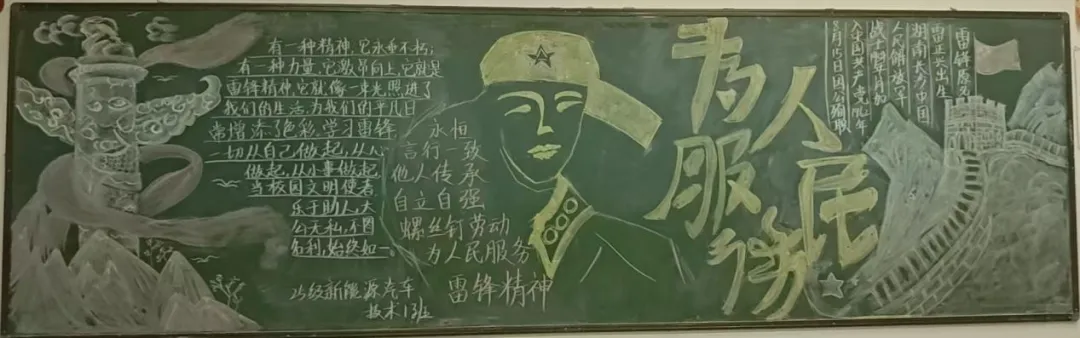 有一种精神,它永垂不朽;
有一种力量,它激昂向上,它就是
雷锋精神它就像一束光照进了
我们的生活,为我们的平凡日
常增添了色彩,学习雷锋
一切从自己做起,从心
做起,从小事做起
当校园文明使者
乐于助人,大
公无私,不图
名利,始终如一。
永恒
言行一致
他人传承
自立自强
螺丝钉劳动
为人民服务
雷锋精神
25级新能源汽车
技术13班
为人民
服务
雷锋原名
雷正兴出生
湖南长沙中国
人民解放军
战士
入中国共产党
8月15日因公殉职